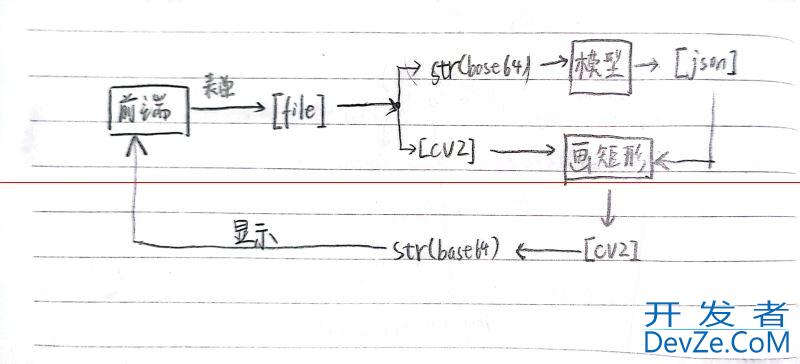 str(base64)
模型
[json]
前端
表单
[file]
[CV2]
画矩形
显示
str(base64)
[CV2]
开发者
DevZe.CoM